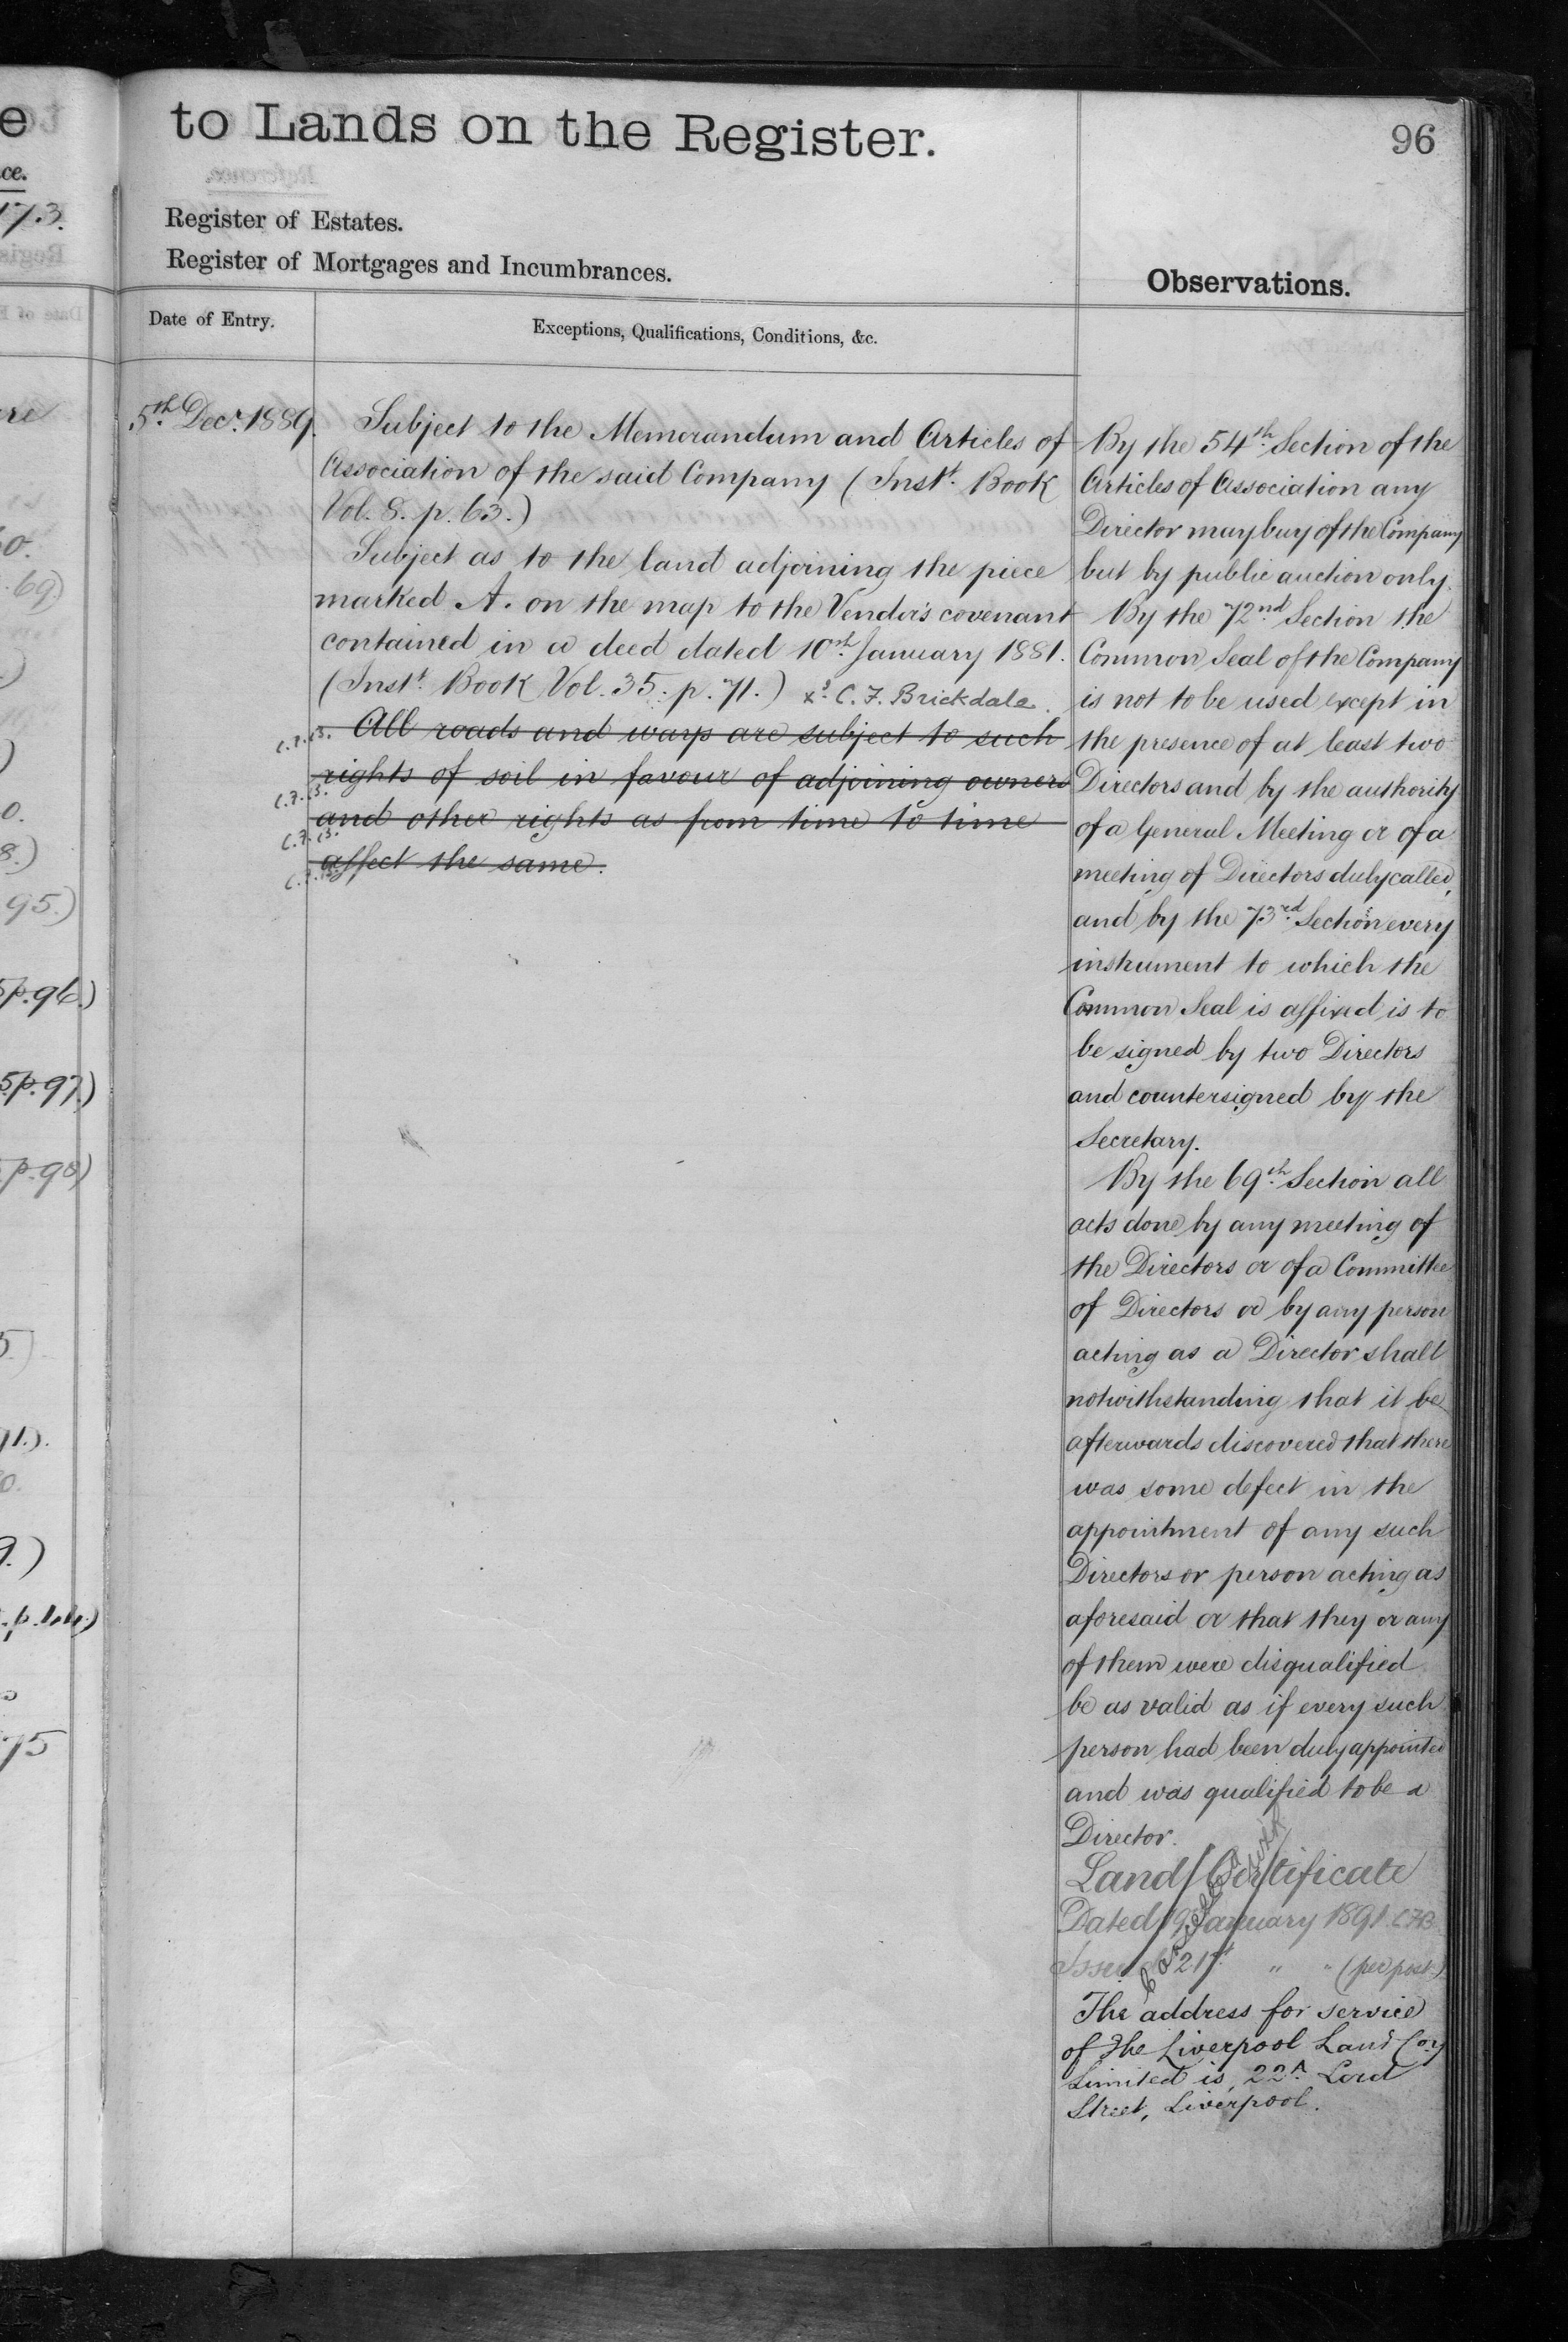 to Lands on the Register.
96
Register of Estates.
Register of Mortgages and Incumbrances.
Observations.
Date of Entry.
Exceptions, Qualifications, Conditions, &c.
5th Decr. 1889.
Subject to the Memorandum and Articles of
Association of the said Company (Instt. Book
Vol. 8. p. 63.)
Subject as to the land adjoining the piece
marked A. on the map to the Vendor's covenant
contained in a deed dated 10th January 1881.
(Instt. Book Vol. 35. p. 71.) C. F. Brickdale.
C.F.B. All roads and ways are subject to such
C.F.B. rights of soil in favour of adjoining owners
C.F.B. and other rights as from time to time
C.F.B. affect the same.
By the 54th Section of the
Articles of Association any
Director may buy of the Company
but by public auction only.
By the 72nd Section the
Common Seal of the Company
is not to be used except in
the presence of at least two
Directors and by the authority
of a General Meeting or of a
meeting of Directors duly called,
and by the 73rd Section every
instrument to which the
Common Seal is affixed is to
be signed by two Directors
and countersigned by the
Secretary.
By the 69th Section all
acts done by any meeting of
the Directors or of a Committee
of Directors or by any person
acting as a Director shall
notwithstanding that it be
afterwards discovered that there
was some defect in the
appointment of any such
Directors or person acting as
aforesaid or that they or any
of them were disqualified
be as valid as if every such
person had been duly appointed
and was qualified to be a
Director.
Land Certificate
Dated 19 January 1891 CFB
Issued 21st " " (per post)
Cancelled
The address for service
of The Liverpool Land Coy
Limited is, 22A Lord
Street, Liverpool.
e
ce.
173.
60.
69)
8.)
95.)
5p.96.)
5p.97.)
p.98)
5.)
91.).
9.)
75